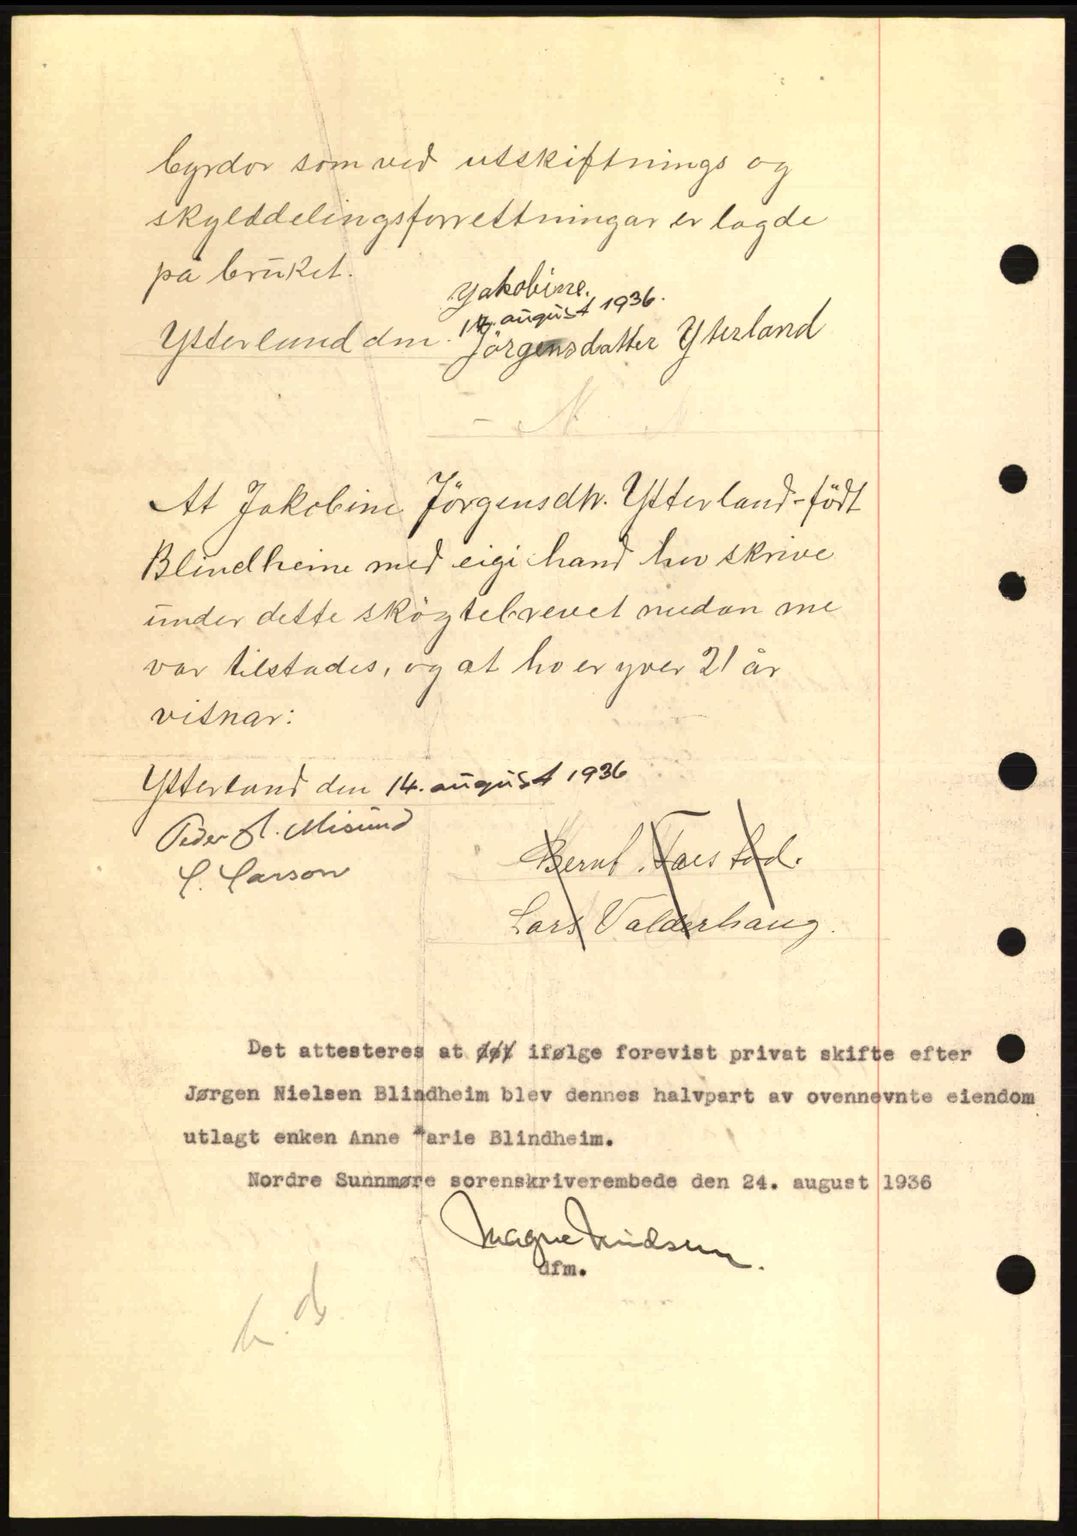 byrdor som ved utskiftnings og
skylddelingsforrettningar er lagde
på bruket.
Yakobine.
14. august 1936.
Ytterland den Jörgensdatter Yterland
At Jakobine Jörgensdtr. Ytterland - födt
Blindheim med eigi hand hev skrive
under dette skögtebrevet medan me
var tilstades, og at ho er yver 21 år
vitnar:
Ytterland den 14. august 1936
Peder A. Misund
C. Carson
Bernt. Farstad.
Lars Valderhaug.
Det attesteres at det ifølge forevist privat skifte efter
Jørgen Nielsen Blindheim blev dennes halvpart av ovennevnte eiendom
utlagt enken Anne Marie Blindheim.
Nordre Sunnmøre sorenskriverembede den 24. august 1936
Magne
dfm.